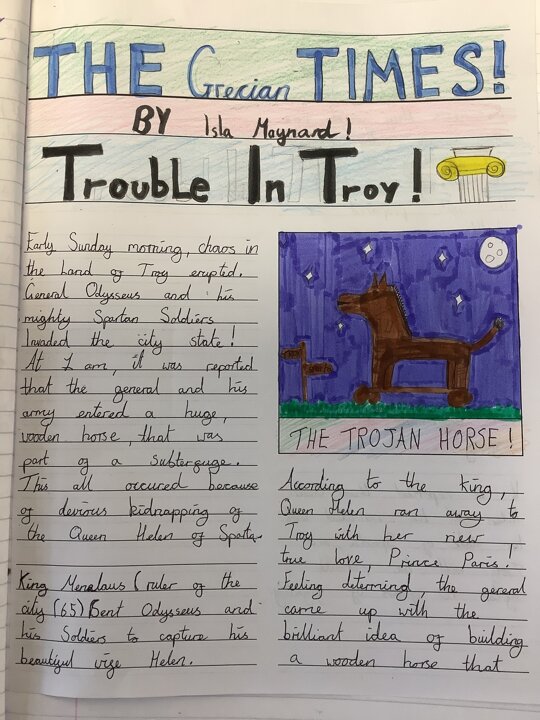 THE Grecian TIMES!
BY Isla Maynard!
Trouble In Troy!
Early Sunday morning, chaos in
the Land of Troy erupted.
General Odysseus and his
mighty Spartan Soldiers
Invaded the city state!
At 1 am, it was reported
that the general and his
army entered a huge,
wooden horse, that was
part of a subterfuge.
This all occured because
of devious kidnapping of
the Queen Helen of Sparta.
King Menalaus (ruler of the
city (65) Sent Odysseus and
his Soldiers to capture his
beautiful wife Helen.
THE TROJAN HORSE!
According to the king,
Queen Helen ran away to
Troy with her new
true love, Prince Paris!
Feeling determind, the general
came up with the
brilliant idea of building
a wooden horse that